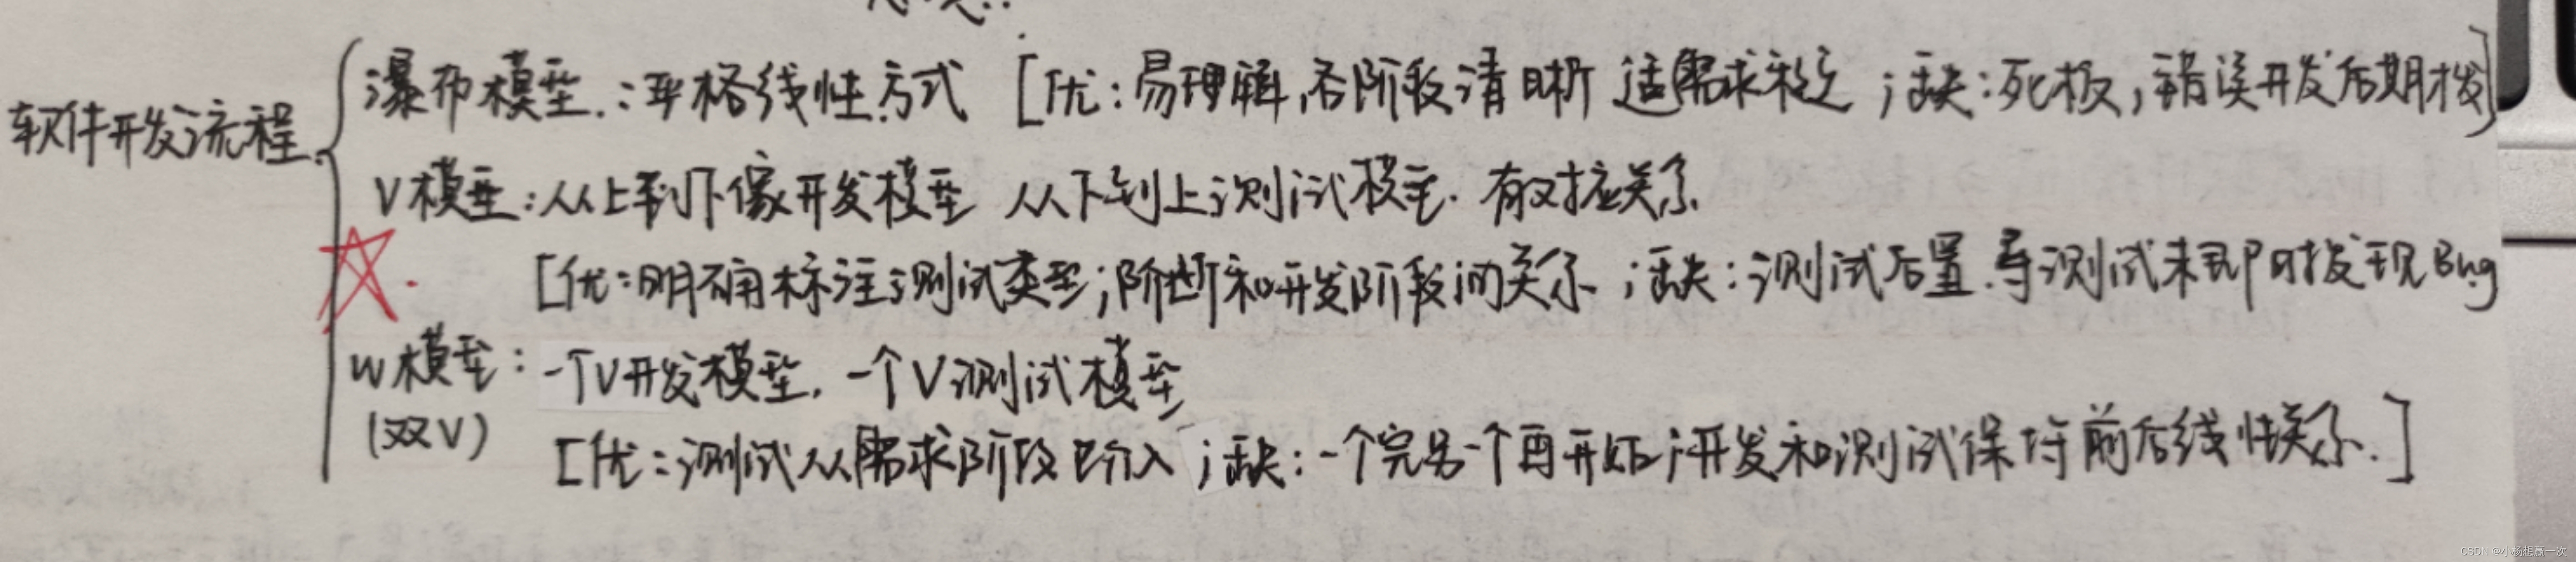 软件开发流程
瀑布模型:严格线性方式 [优:易理解,各阶段清晰 适需求稳定 ;缺:死板,错误开发后期才发]
V模型:从上到下像开发模型 从下到上测试模型. 有对应关系
[优:明确标注测试类型;阶断和开发阶段间关系 ;缺:测试后置.导测试未即时发现Bug
W模型:一个V开发模型,一个V测试模型
(双V)
[优:测试从需求阶段已介入 ;缺:一个完另一个再开始;开发和测试保持前后线性关系.]
CSDN @小杨想赢一次